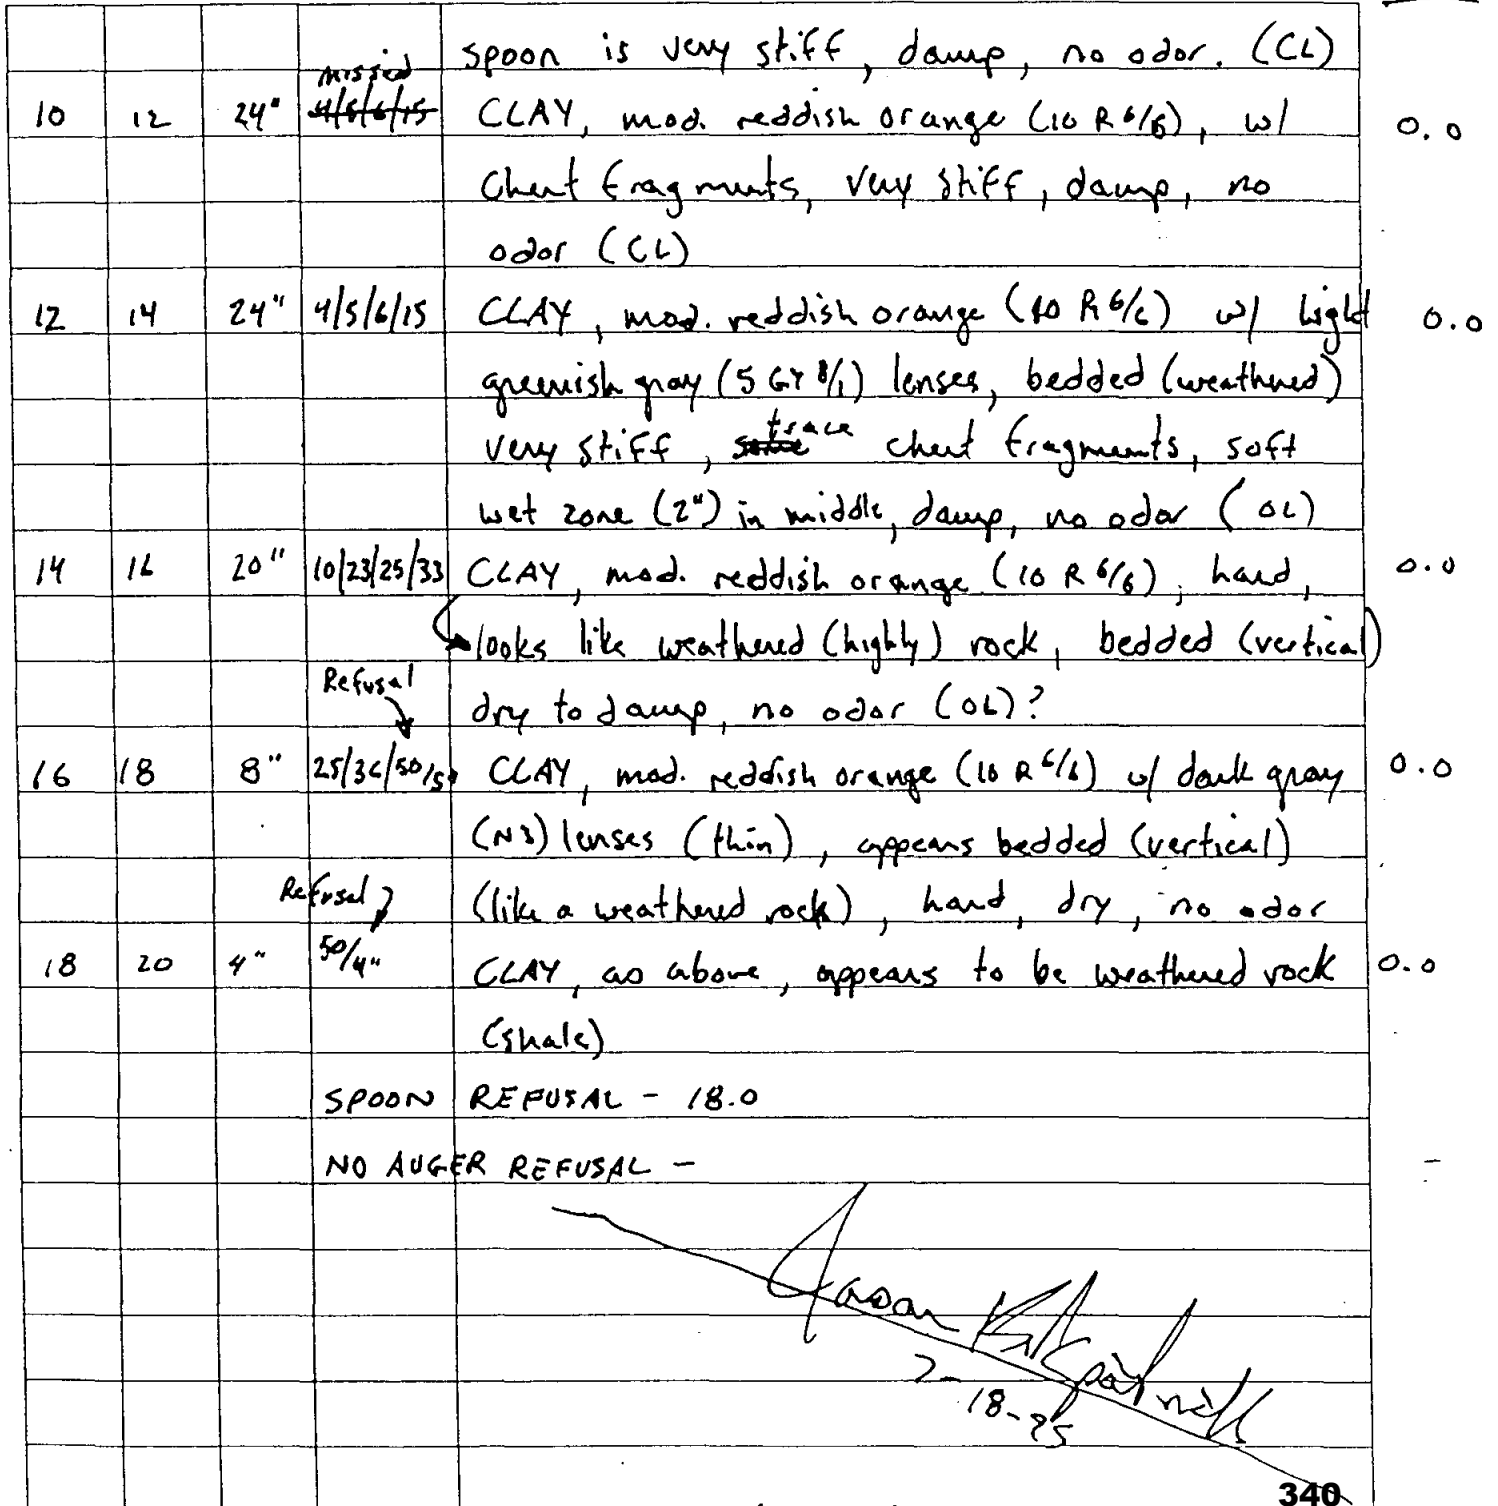 spoon is very stiff, damp, no odor. (CL)
missed
10 12 24" 4/5/6/15 CLAY, mod. reddish orange (10 R 6/6), w/ 0.0
chert fragments, very stiff, damp, no
odor (CL)
12 14 24" 4/5/6/15 CLAY, mod. reddish orange (10 R 6/6) w/ light 0.0
greenish gray (5 GY 8/1) lenses, bedded (weathered)
very stiff, some trace chert fragments, soft
wet zone (2") in middle, damp, no odor (OL)
14 16 20" 10/23/25/33 CLAY, mod. reddish orange (10 R 6/6), hard, 0.0
looks like weathered (highly) rock, bedded (vertical)
Refusal
dry to damp, no odor (OL)?
16 18 8" 25/36/50/5" CLAY, mod. reddish orange (10 R 6/6) w/ dark gray 0.0
(N3) lenses (thin), appears bedded (vertical)
Refusal (like a weathered rock), hard, dry, no odor
18 20 4" 50/4" CLAY, as above, appears to be weathered rock 0.0
(shale)
SPOON REFUSAL - 18.0
NO AUGER REFUSAL -
Jason Kilpatrick
2-18-95
340